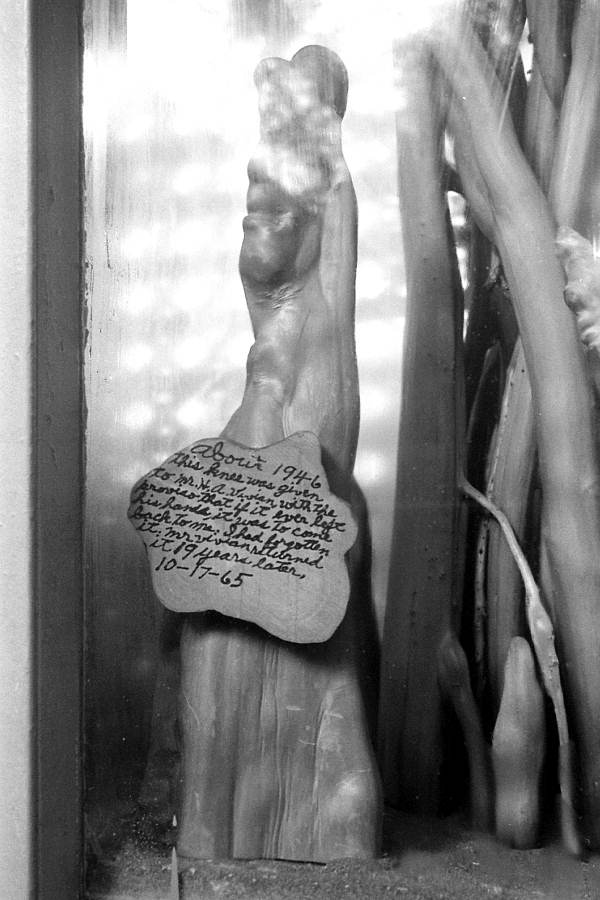 About 1946
this knee was given
to Mr. H. A. Vivian with the
proviso that if it ever left
his hands it was to come
back to me. I had forgotten
it, Mr Vivian returned
it 19 years later,
10-17-65